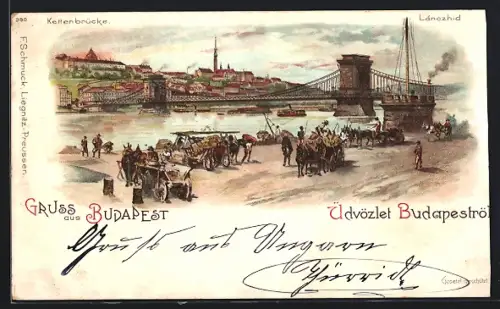 Kettenbrücke.
Lánczhid
F. Schmuck, Liegnitz, Preussen.
GRUSS aus BUDAPEST
Üdvözlet Budapestről
Gruss aus Ungarn
Gesetzl. geschützt